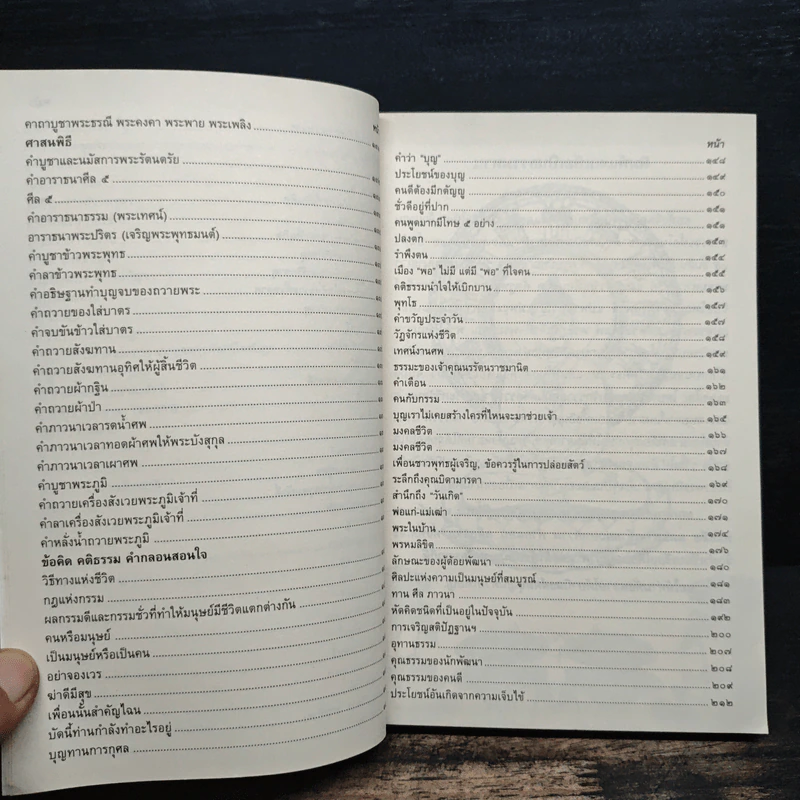 คาถาบูชาพระธรณี พระคงคา พระพาย พระเพลิง
ศาสนพิธี
คำบูชาและนมัสการพระรัตนตรัย
คำอาราธนาศีล ๕
ศีล ๕
คำอาราธนาธรรม (พระเทศน์)
อาราธนาพระปริตร (เจริญพระพุทธมนต์)
คำบูชาข้าวพระพุทธ
คำลาข้าวพระพุทธ
คำอธิษฐานทำบุญจบของถวายพระ
คำถวายของใส่บาตร
คำจบขันข้าวใส่บาตร
คำถวายสังฆทาน
คำถวายสังฆทานอุทิศให้ผู้สิ้นชีวิต
คำถวายผ้ากฐิน
คำถวายผ้าป่า
คำภาวนาเวลารดน้ำศพ
คำภาวนาเวลาทอดผ้าศพให้พระบังสุกุล
คำภาวนาเวลาเผาศพ
คำบูชาพระภูมิ
คำถวายเครื่องสังเวยพระภูมิเจ้าที่
คำลาเครื่องสังเวยพระภูมิเจ้าที่
คำหลั่งน้ำถวายพระภูมิ
ข้อคิด คติธรรม คำกลอนสอนใจ
วิธีทางแห่งชีวิต
กฎแห่งกรรม
ผลกรรมดีและกรรมชั่วที่ทำให้มนุษย์มีชีวิตแตกต่างกัน
คนหรือมนุษย์
เป็นมนุษย์หรือเป็นคน
อย่าจองเวร
ฆ่าดีมีสุข
เพื่อนนั้นสำคัญไฉน
บัดนี้ท่านกำลังทำอะไรอยู่
บุญทานการกุศล
หน้า
คำว่า "บุญ" ๑๔๘
ประโยชน์ของบุญ ๑๔๙
คนดีต้องมีกตัญญู ๑๕๐
ชั่วดีอยู่ที่ปาก ๑๕๑
คนพูดมากมีโทษ ๕ อย่าง ๑๕๑
ปลงตก ๑๕๓
รำพึงตน ๑๕๔
เมือง "พอ" ไม่มี แต่มี "พอ" ที่ใจคน ๑๕๕
คติธรรมนำใจให้เบิกบาน ๑๕๖
พุทโธ ๑๕๗
คำขวัญประจำวัน ๑๕๗
วัฏจักรแห่งชีวิต ๑๕๘
เทศน์งานศพ ๑๕๙
ธรรมะของเจ้าคุณนรรัตนราชมานิต ๑๖๑
คำเตือน ๑๖๒
คนกับกรรม ๑๖๓
บุญเราไม่เคยสร้างใครที่ไหนจะมาช่วยเจ้า ๑๖๕
มงคลชีวิต ๑๖๖
มงคลชีวิต ๑๖๗
เพื่อนชาวพุทธผู้เจริญ, ข้อควรรู้ในการปล่อยสัตว์ ๑๖๘
ระลึกถึงคุณบิดามารดา ๑๖๙
สำนึกถึง "วันเกิด" ๑๗๐
พ่อแก่-แม่เฒ่า ๑๗๑
พระในบ้าน ๑๗๔
พรหมลิขิต ๑๗๖
ลักษณะของผู้ด้อยพัฒนา ๑๘๐
ศิลปะแห่งความเป็นมนุษย์ที่สมบูรณ์ ๑๘๑
ทาน ศีล ภาวนา ๑๘๓
หัดคิดชนิดที่เป็นอยู่ในปัจจุบัน ๑๙๒
การเจริญสติปัฏฐานฯ ๒๐๐
อุทานธรรม ๒๐๗
คุณธรรมของนักพัฒนา ๒๐๘
คุณธรรมของคนดี ๒๐๙
ประโยชน์อันเกิดจากความเจ็บไข้ ๒๑๒